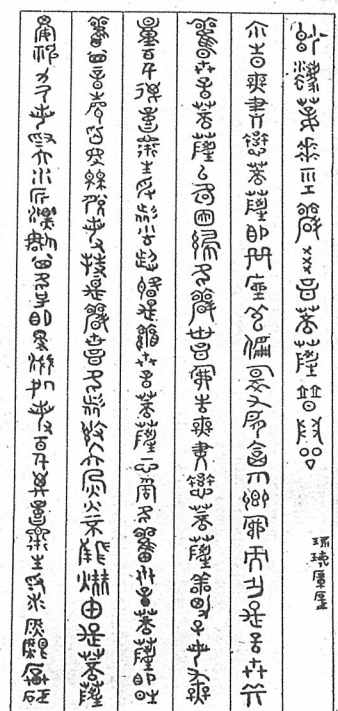 妙法蓮華經觀世音菩薩普門品
爾時無盡意菩薩即從座起偏袒右肩合掌向佛而作是言世尊
觀世音菩薩以何因緣名觀世音佛告無盡意菩薩善男子若有無
量百千萬億眾生受諸苦惱聞是觀世音菩薩一心稱名觀世音菩薩即時
觀其音聲皆得解脫若有持是觀世音名者設入大火火不能燒由是菩薩
威神力故若為大水所漂稱其名號即得淺處若有百千萬億眾生為求